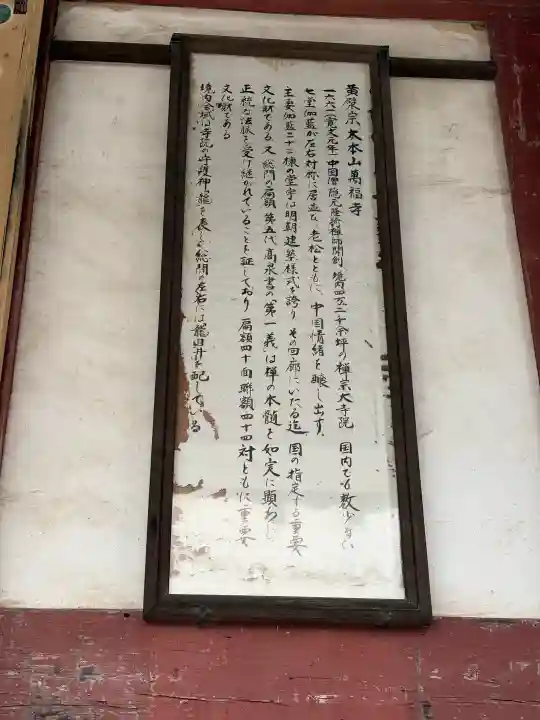 黄檗宗 大本山 萬福寺
一六六一(寛文元年)中国僧隠元隆琦禅師開創 境内四万二千余坪の禅宗大寺院 国内でも数少ない
七堂伽藍が左右対称に居並び 老松とともに 中国情緒を醸し出す。
主要伽藍二十二棟の堂宇は明朝建築様式を誇り その回廊にいたる迄 国の指定する重要
文化財である 又 総門の扁額 第五代高泉書の「第一義」は禅の本髄を如実に顕わし
正統な法脈を受け継がれていることを証しており 扁額四十面 聯額四十四対ともに重要
文化財である
境内全域は寺院の守護神龍を表し 総門の左右には龍目井を配している